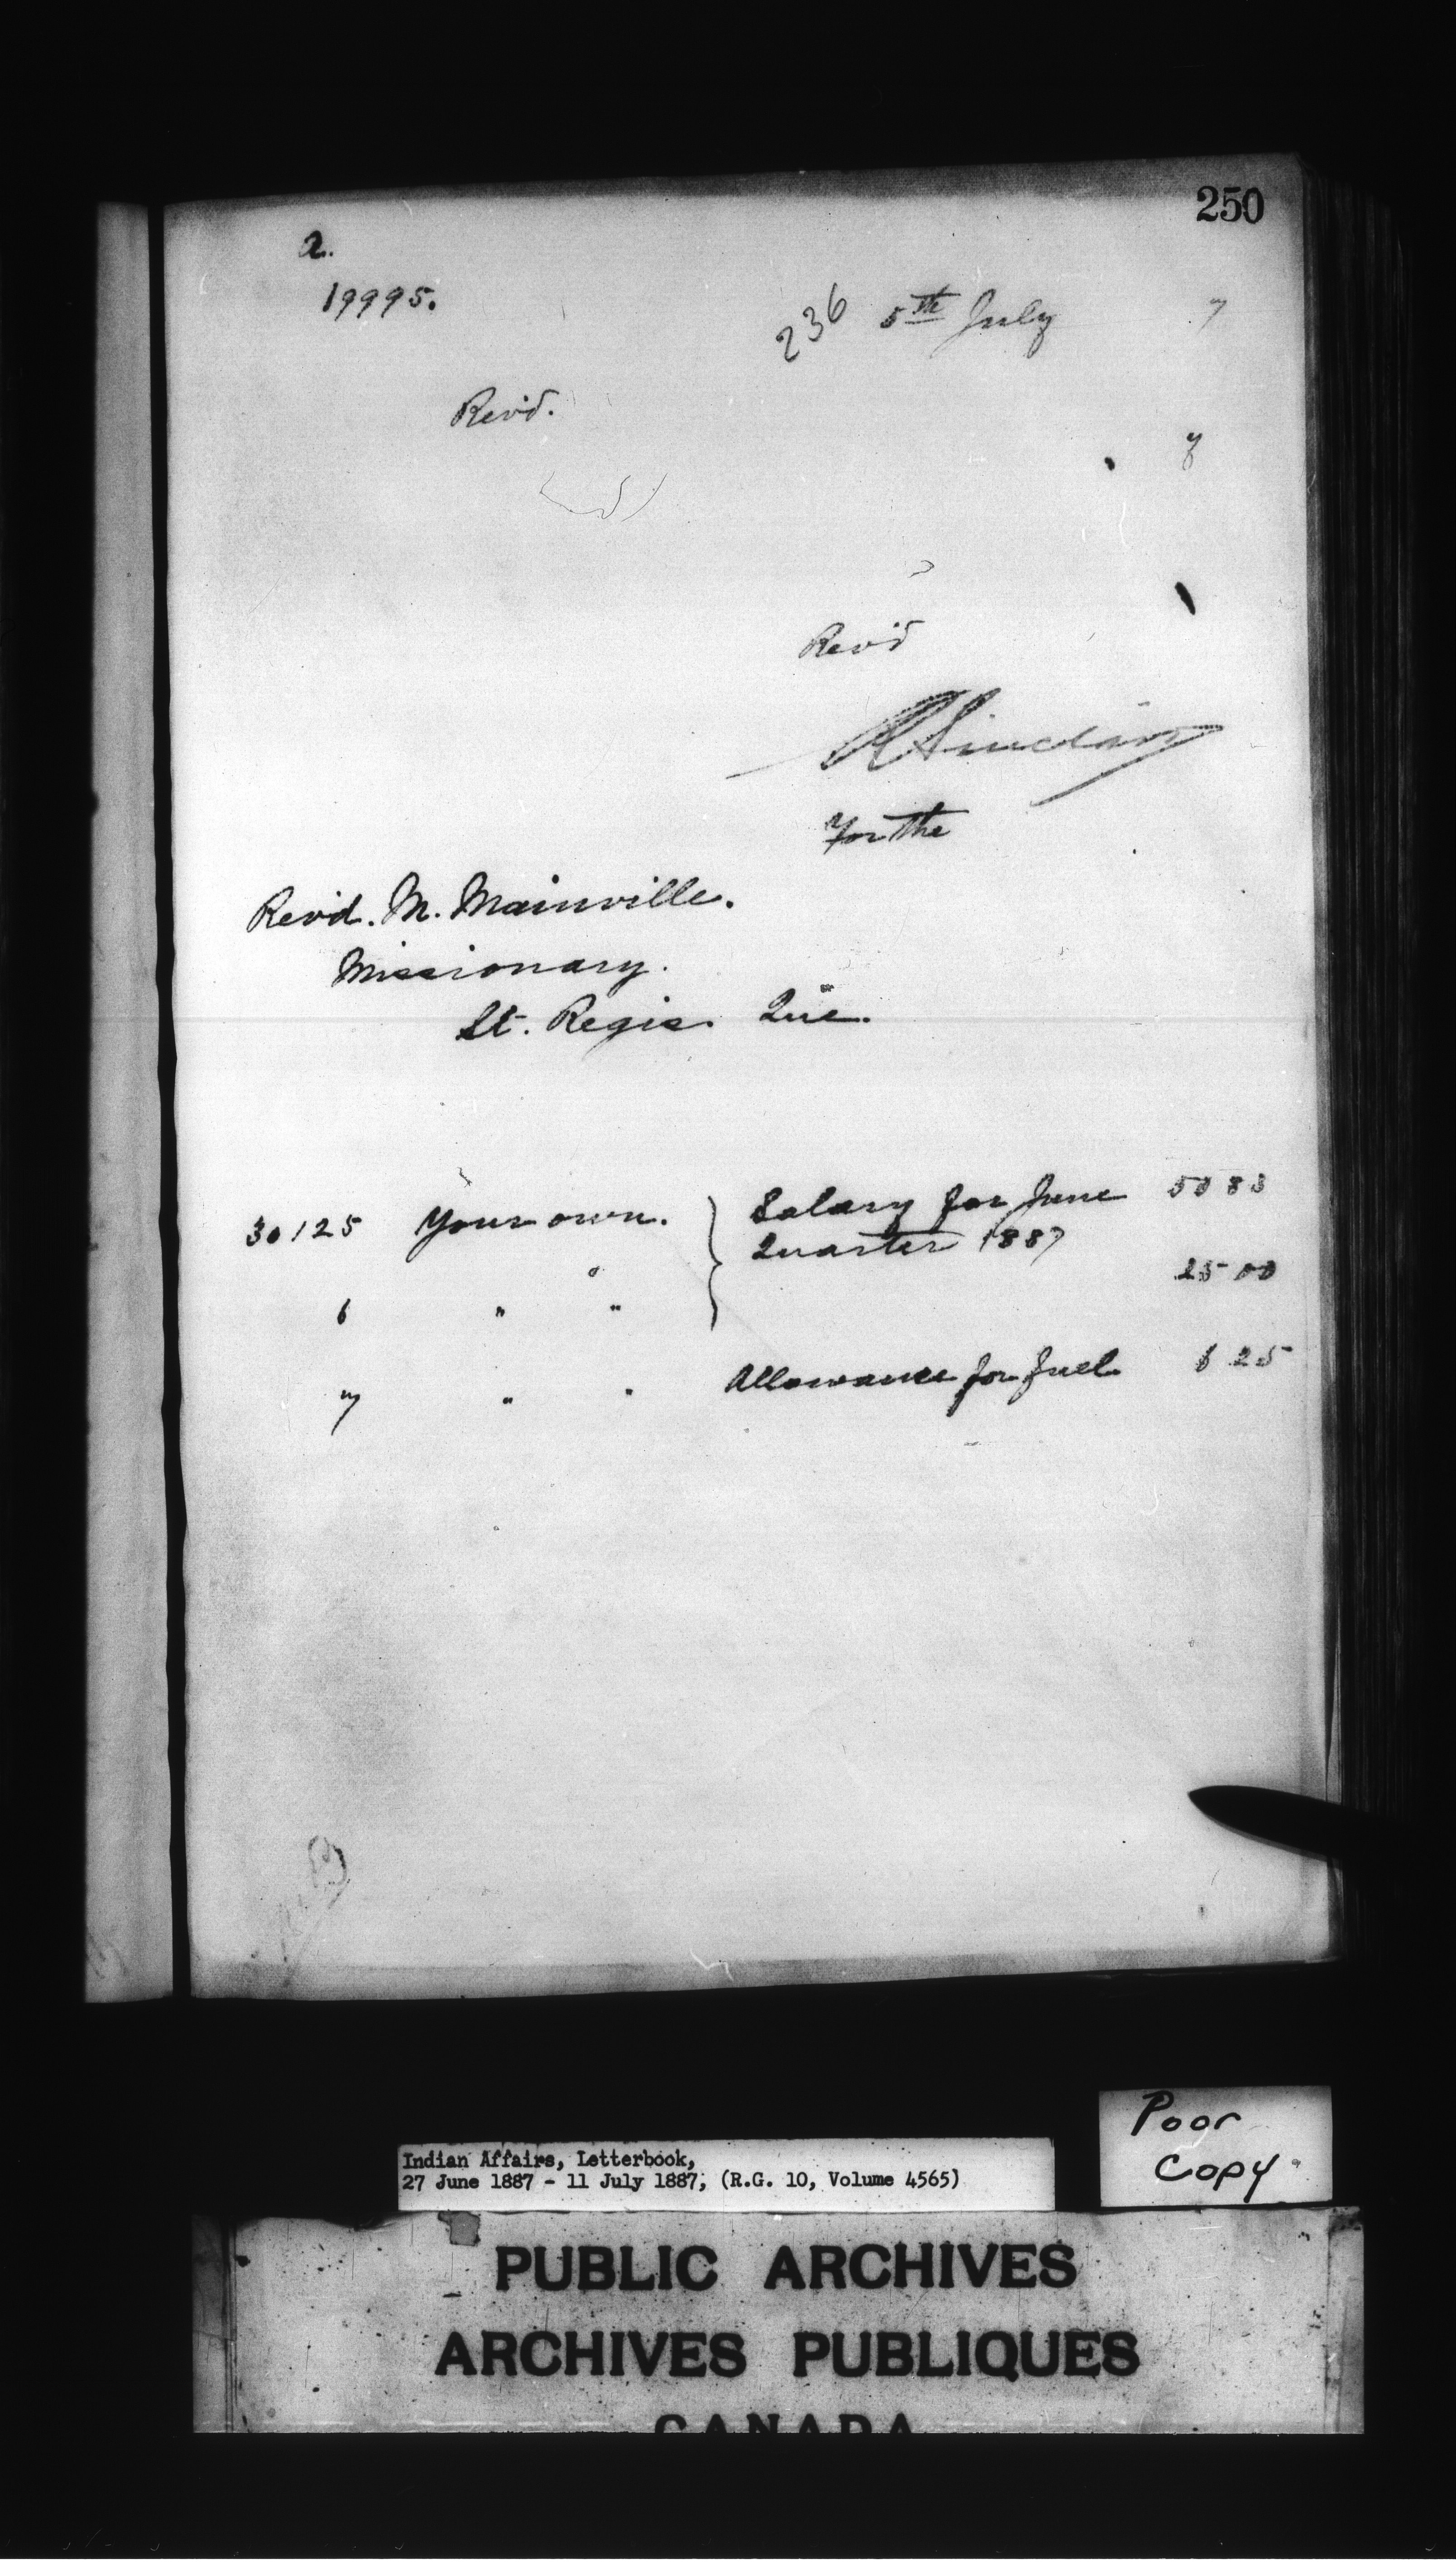 250
a.
19995.
236 5th July 7
Revd.
y
Revd
R Sinclair
For the
Revd. M. Mainville.
Missionary.
St. Regis. Que.
30125 Your own. } Salary for June 50 83
Quarter 1887
25 00
6 " "
7 " " Allowance for fuel 6 25
Poor
Copy
Indian Affairs, Letterbook,
27 June 1887 - 11 July 1887, (R.G. 10, Volume 4565)
PUBLIC ARCHIVES
ARCHIVES PUBLIQUES
CANADA